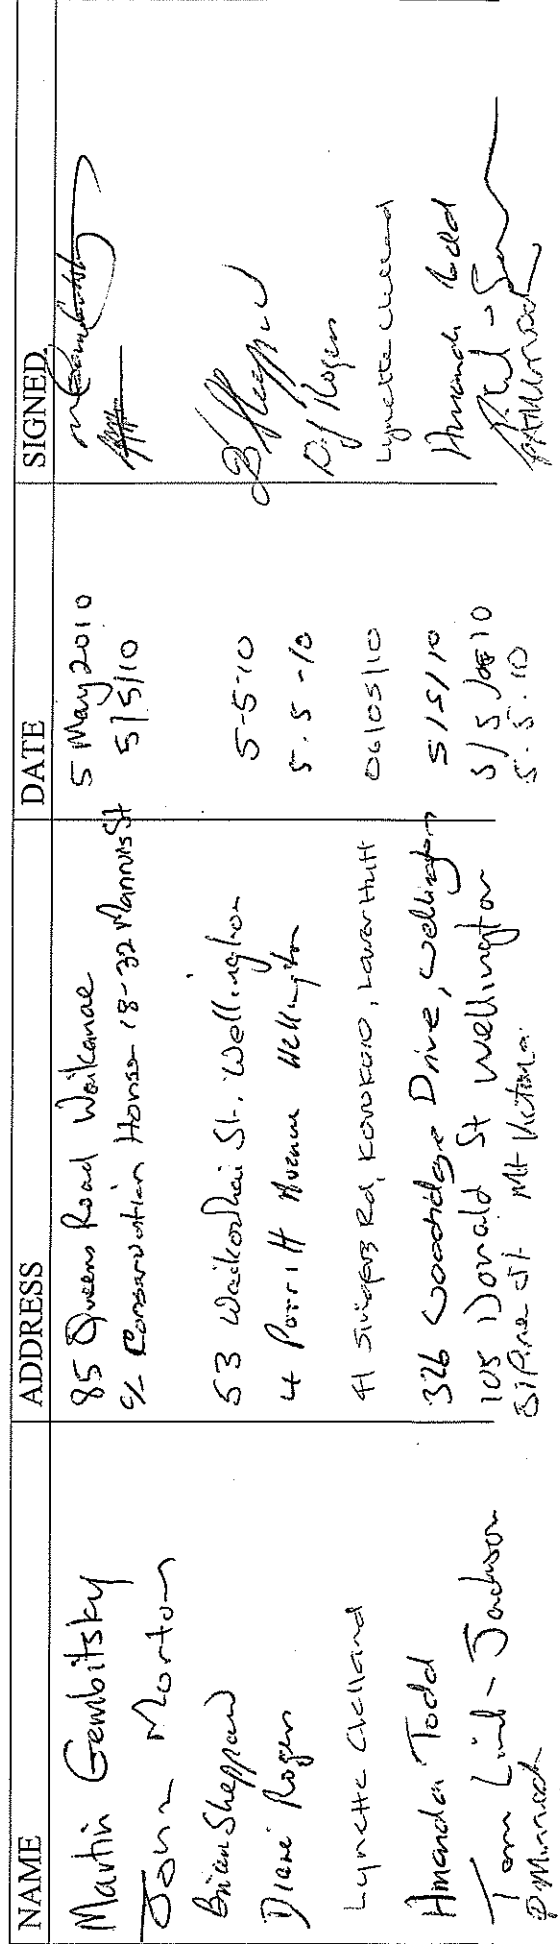 NAME ADDRESS DATE SIGNED
Martin Gembitsky 85 Queens Road Waikanae 5 May 2010
John Morton c/ Conservation House 18-32 Manners St 5/5/10
Brian Sheppard 53 Waikowhai St. Wellington 5-5-10 B Sheppard
Diane Rogers 4 Porritt Avenue Wellington 5.5-10 D J Rogers
Lynette Clelland 41 Singers Rd, Korokoro, Lower Hutt 06/05/10 Lynette Clelland
Amanda Todd 326 Woodridge Drive, Wellington 5/5/10 Amanda Todd
Tom Lind-Jackson 105 Donald St Wellington 5/5/2010
Pirie St. Mt Victoria 5.5.10